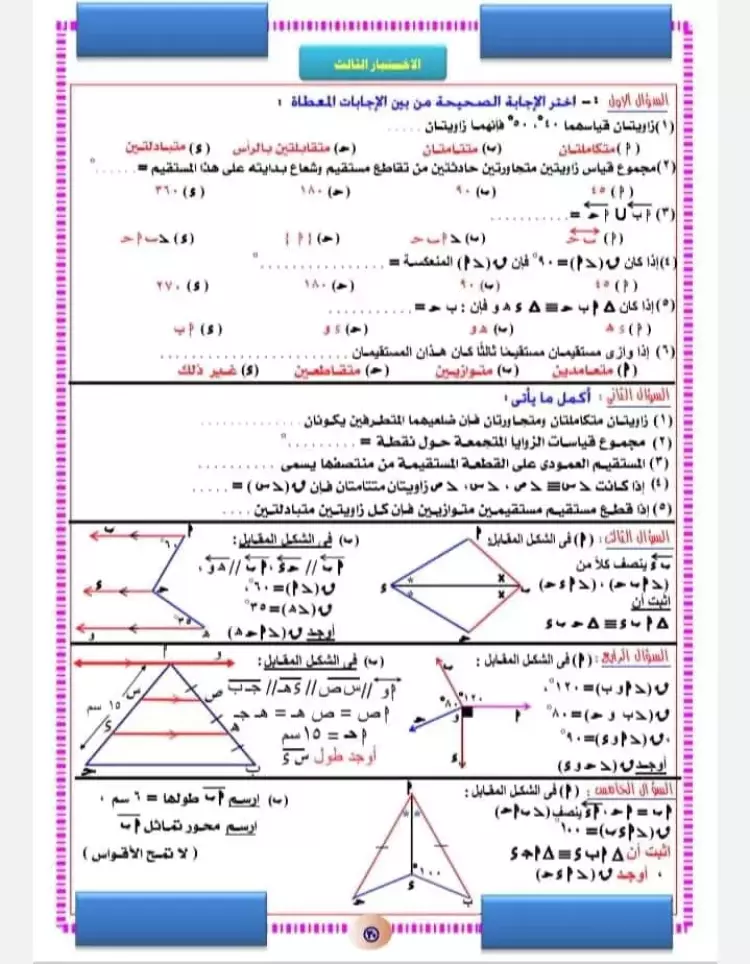 الاختبار الثالث
السؤال الاول : - اختر الإجابة الصحيحة من بين الإجابات المعطاة :
(١) زاويتان قياسهما ٤٠° ، ٥٠° فإنهما زاويتان .....
(أ) متكاملتان (ب) متتامتان (حـ) متقابلتين بالرأس (ء) متبادلتين
(٢) مجموع قياس زاويتين متجاورتين حادثتين من تقاطع مستقيم وشعاع بدايته على هذا المستقيم = ......°
(أ) ٤٥ (ب) ٩٠ (حـ) ١٨٠ (ء) ٣٦٠
(٣) أب ∪ أحـ = ...........
(أ) بحـ (ب) > أبحـ (حـ) {أ} (ء) > بأحـ
(٤) إذا كان ن(>أ) = ٩٠° فإن ن(>أ) المنعكسة = ................°
(أ) ٤٥ (ب) ٩٠ (حـ) ١٨٠ (ء) ٢٧٠
(٥) إذا كان Δ أبحـ ≡ Δ ءهو فإن : بحـ = ............
(أ) ءه (ب) هو (حـ) ءو (ء) أب
(٦) إذا وازى مستقيمان مستقيمًا ثالثًا كان هذان المستقيمان ........................
(أ) متعامدين (ب) متوازيين (حـ) متقاطعين (ء) غير ذلك
السؤال الثاني : أكمل ما يأتى :
(١) زاويتان متكاملتان ومتجاورتان فإن ضلعيهما المتطرفين يكونان ................
(٢) مجموع قياسات الزوايا المتجمعة حول نقطة = ..........°
(٣) المستقيم العمودى على القطعة المستقيمة من منتصفها يسمى ..........
(٤) إذا كانت >س ≡ >ص ، >س، >ص زاويتان متتامتان فإن ن(>س) = .....
(٥) إذا قطع مستقيم مستقيمين متوازيين فإن كل زاويتين متبادلتين ....
السؤال الثالث : (أ) فى الشكل المقابل:
بء ينصف كلاً من
(>أبحـ) ، (>أءحـ)
اثبت أن
Δ أبء ≡ Δ حـبء
أ
ب
حـ
ء
x
x
*
*
(ب) فى الشكل المقابل:
أب // حـء ، أب // هو ،
ن(>أ) = ٦٠° ،
ن(>ه) = ٣٥°
أوجد ن(>أحـه)
ب
أ
٦٠°
ء
حـ
٣٥°
و
ه
السؤال الرابع : (أ) فى الشكل المقابل :
ن(>أوب) = ١٢٠° ،
ن(>بوحـ) = ٨٠°
، ن(>أوء) = ٩٠°
أوجد ن(>حـوء)
ب
١٢٠°
٨٠°
و
أ
حـ
ء
(ب) فى الشكل المقابل:
أو // س ص // ءهـ // جـ ب
أص = ص هـ = هـ جـ
أحـ = ١٥ سم
أوجد طول س ء
أ
و
س
ص
١٥ سم
ء
ه
حـ
ب
السؤال الخامس : (أ) فى الشكل المقابل :
أب = أحـ ، أء ينصف (>بأحـ)
ن(>أءب) = ١٠٠°
اثبت أن Δ أبء ≡ Δ أجـء
، أوجد ن(>أءحـ)
أ
*
*
١٠٠°
ء
حـ
ب
(ب) ارسم أب طولها = ٦ سم ،
ارسم محور تماثل أب
( لا تمح الأقواس )
٣٠